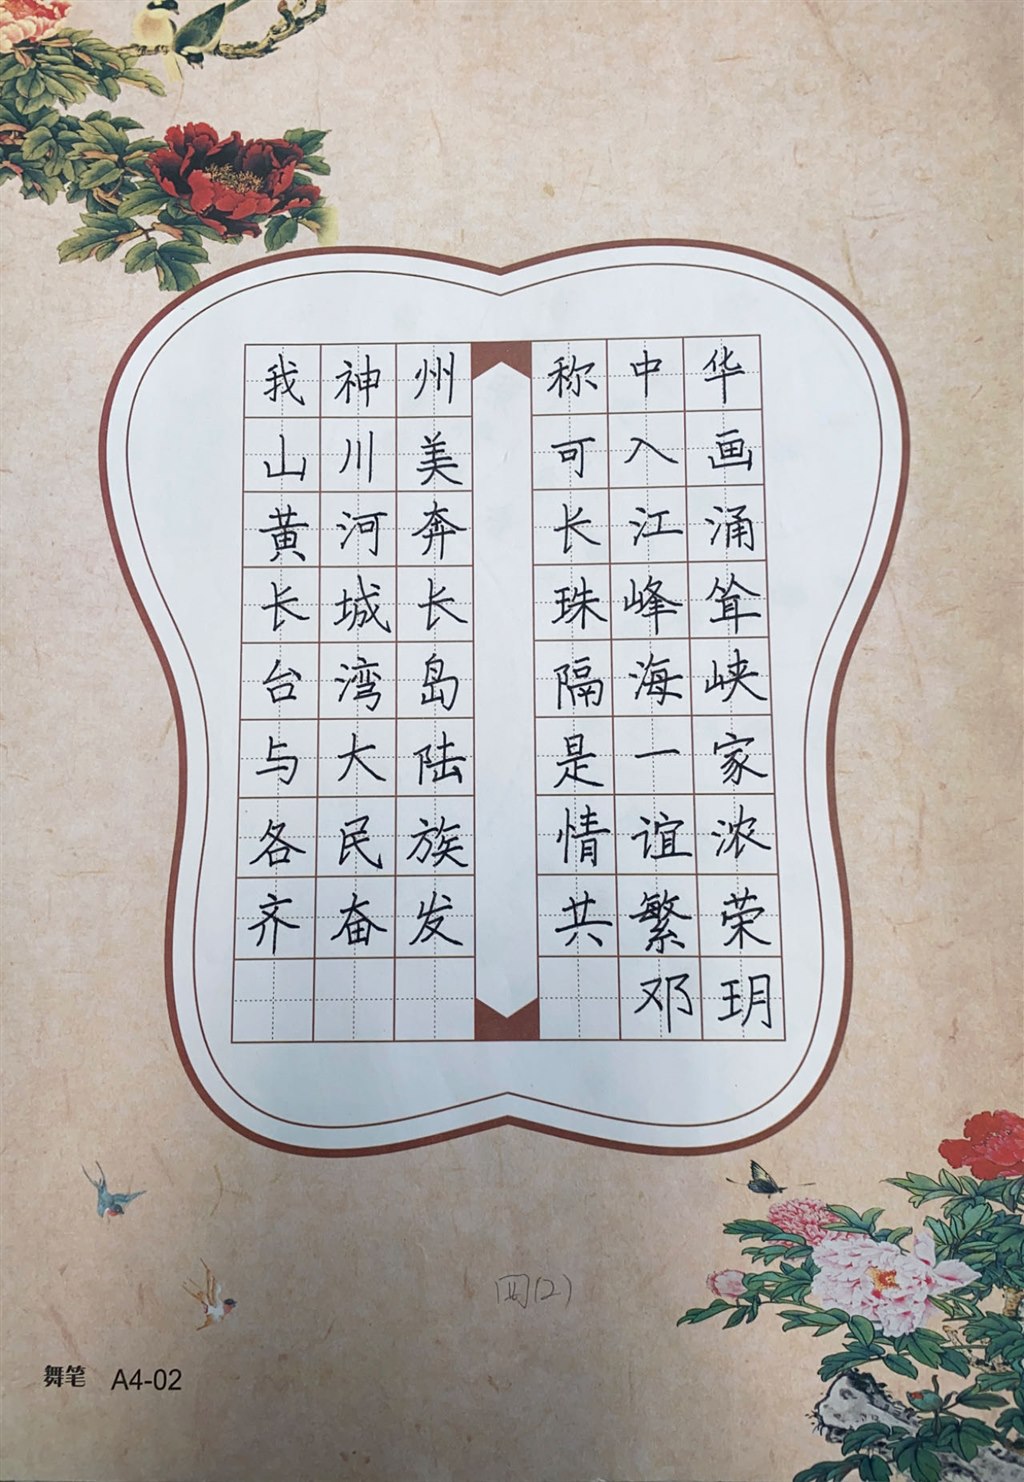 我神州 称中华
山川美 可入画
黄河奔 长江涌
长城长 珠峰耸
台湾岛 隔海峡
与大陆 是一家
各民族 情谊浓
齐奋发 共繁荣
邓玥
四(2)
舞笔 A4-02